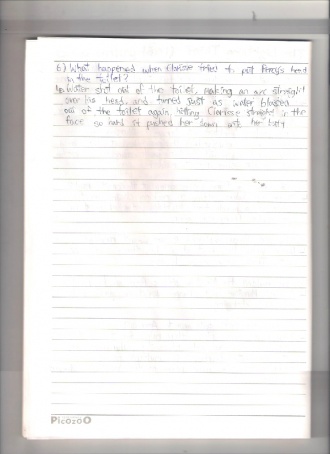 6) What happened when Clarisse tried to put Percy's head
in the toilet?
Water shot out of the toilet, making an arc straight
over his head, and turned just as water blasted
out of the toilet again hitting Clarisse straight in the
face so hard it pushed her down onto her butt
PicozoO